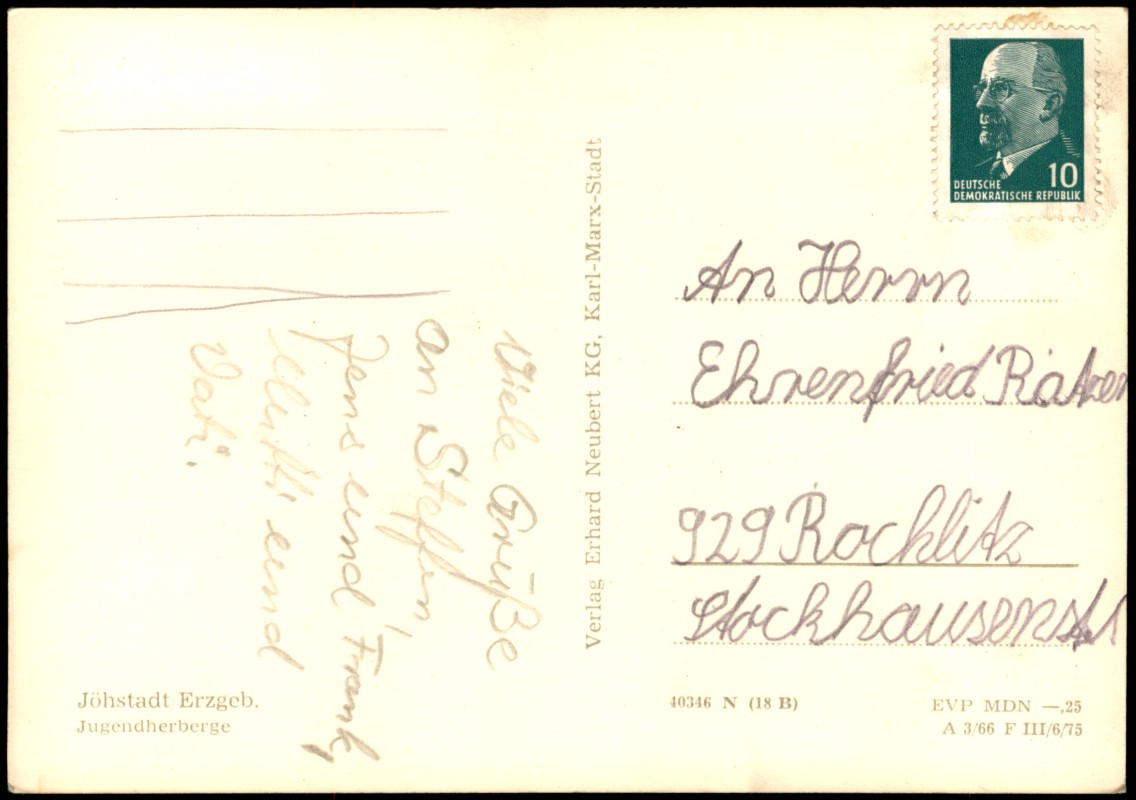 Viele Grüße
an Steffen,
Jens und Frank,
Mutti und
Vati.
Jöhstadt Erzgeb.
Jugendherberge
Verlag Erhard Neubert KG, Karl-Marx-Stadt
10
DEUTSCHE
DEMOKRATISCHE REPUBLIK
An Herrn
Ehrenfried
929 Rochlitz
40346 N (18 B)
EVP MDN —,25
A 3/66 F III/6/75